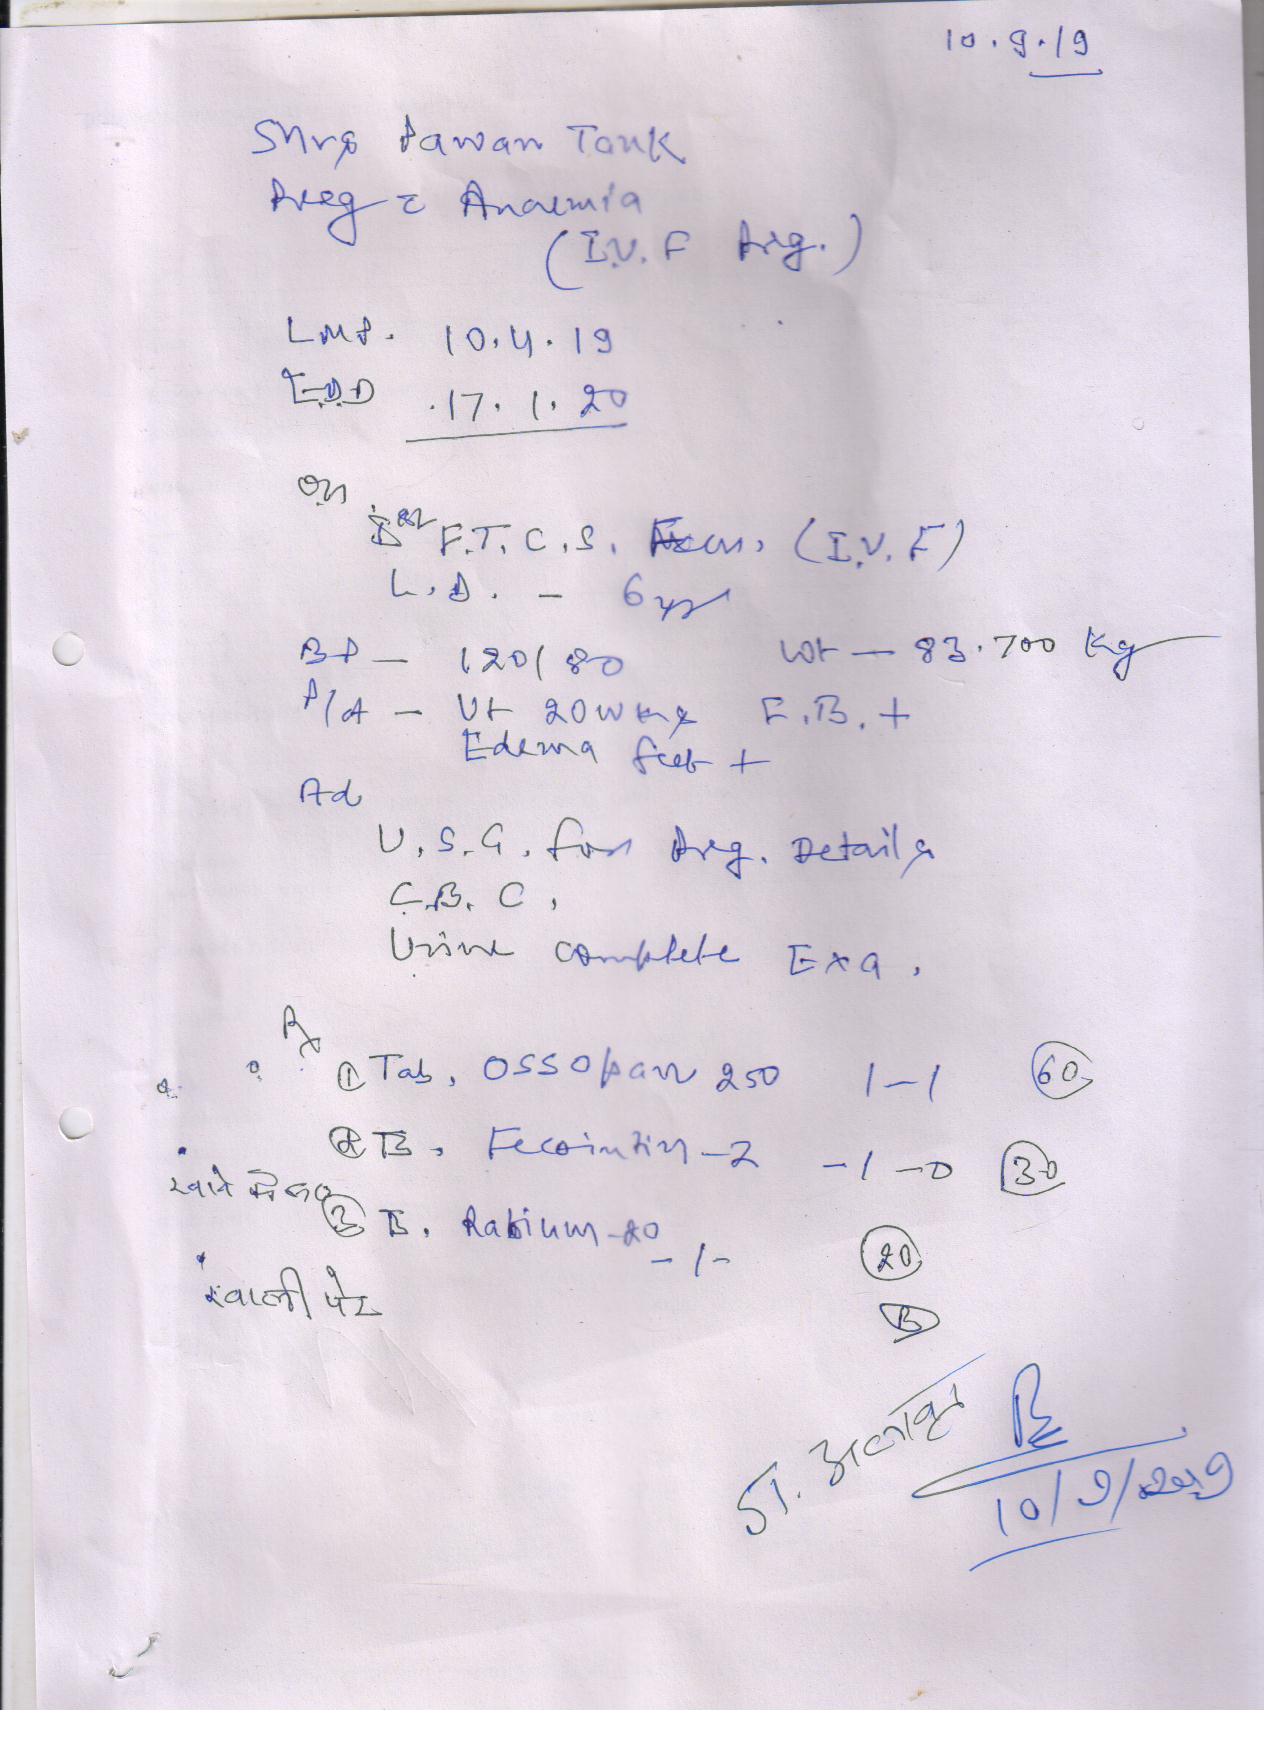 10.9.19
Pawan Tank
Preg c Anaemia
(I.V.F Preg.)
LMP. 10.4.19
E.D.D .17.1.20
OH
F.T.C.S. (I.V.F)
L.D. - 6 yr
BP - 120/80 Wt - 83.700 Kg
P/A - Ut 20 wks F.B.+
Edema feet +
Ad
U.S.G. for Preg. Details
C.B.C,
Urine complete Exa.
Rx
① Tab. Ossopan 250 1-1 60
② T. -Z -1-0 30
खाने के बाद
③ T. Rabium-20 -1- 20
खाली पेट
डा.
10/9/2019